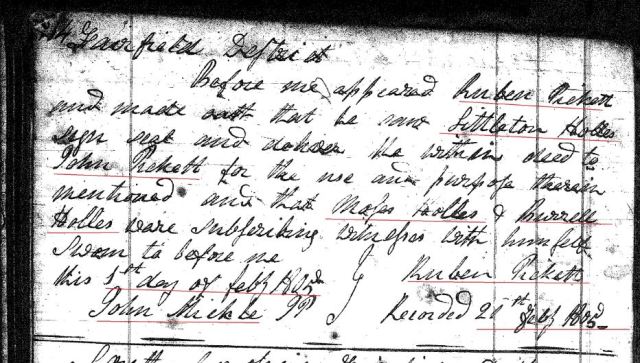 Fairfield District
Before me appeared Ruben Pickett
and made oath that he saw Littleton Holles
sign seal and deliver the within deed to
John Pickett for the use and purpose therein
mentioned and that Moses Holles & Burrell
Holles were subscribing witnesses with himself
Sworn to before me
this 1st day of feby Ruben Pickett
John Mickle JP Recorded feby